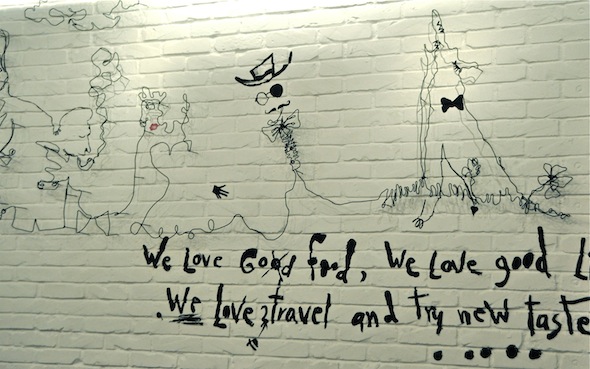 We Love Good food, We Love good Li
.We Love travel and try new taste
.....